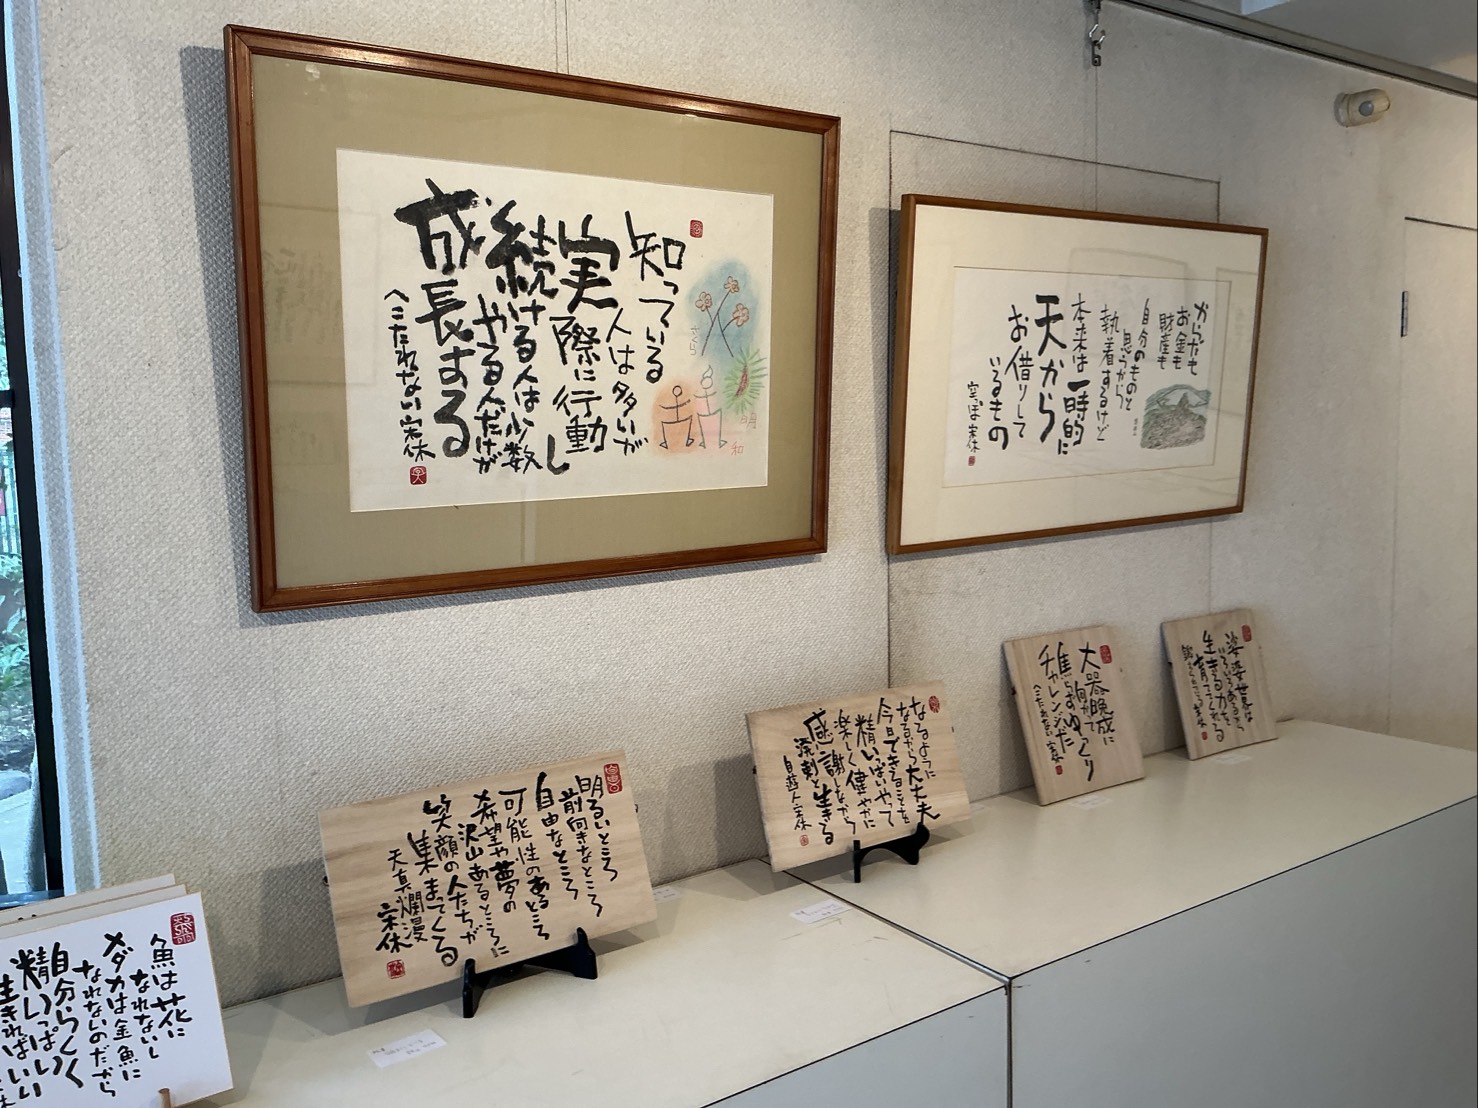 知っている
人は多いが
実際に行動し
続ける人は少数
やる人だけが
成長する
へこたれない 宋休
さくら
明
和
からだも
お金も
財産も
自分のものと
思うから
執着するけど
本来は一時的に
天から
お借りして
いるもの
空っぽ 宋休
魚は花に
なれないし
メダカは金魚に
なれないのだから
自分らしく
精いっぱい
生きればいい
明るいところ
前向きなところ
自由なところ
可能性のあるところ
希望や夢の
沢山あるところに
笑顔の人たちが
集まってくる
天真爛漫
宋休
なるように
なるから大丈夫
今日できることを
精いっぱいやって
楽しく健やかに
感謝しながら
溌剌と生きる
自遊人 宋休
大器晩成に
向かってゆっくり
焦らず
チャレンジだ
へこたれない 宋休
娑婆世界は
いろいろあるから
生きる力を
育ててくれる